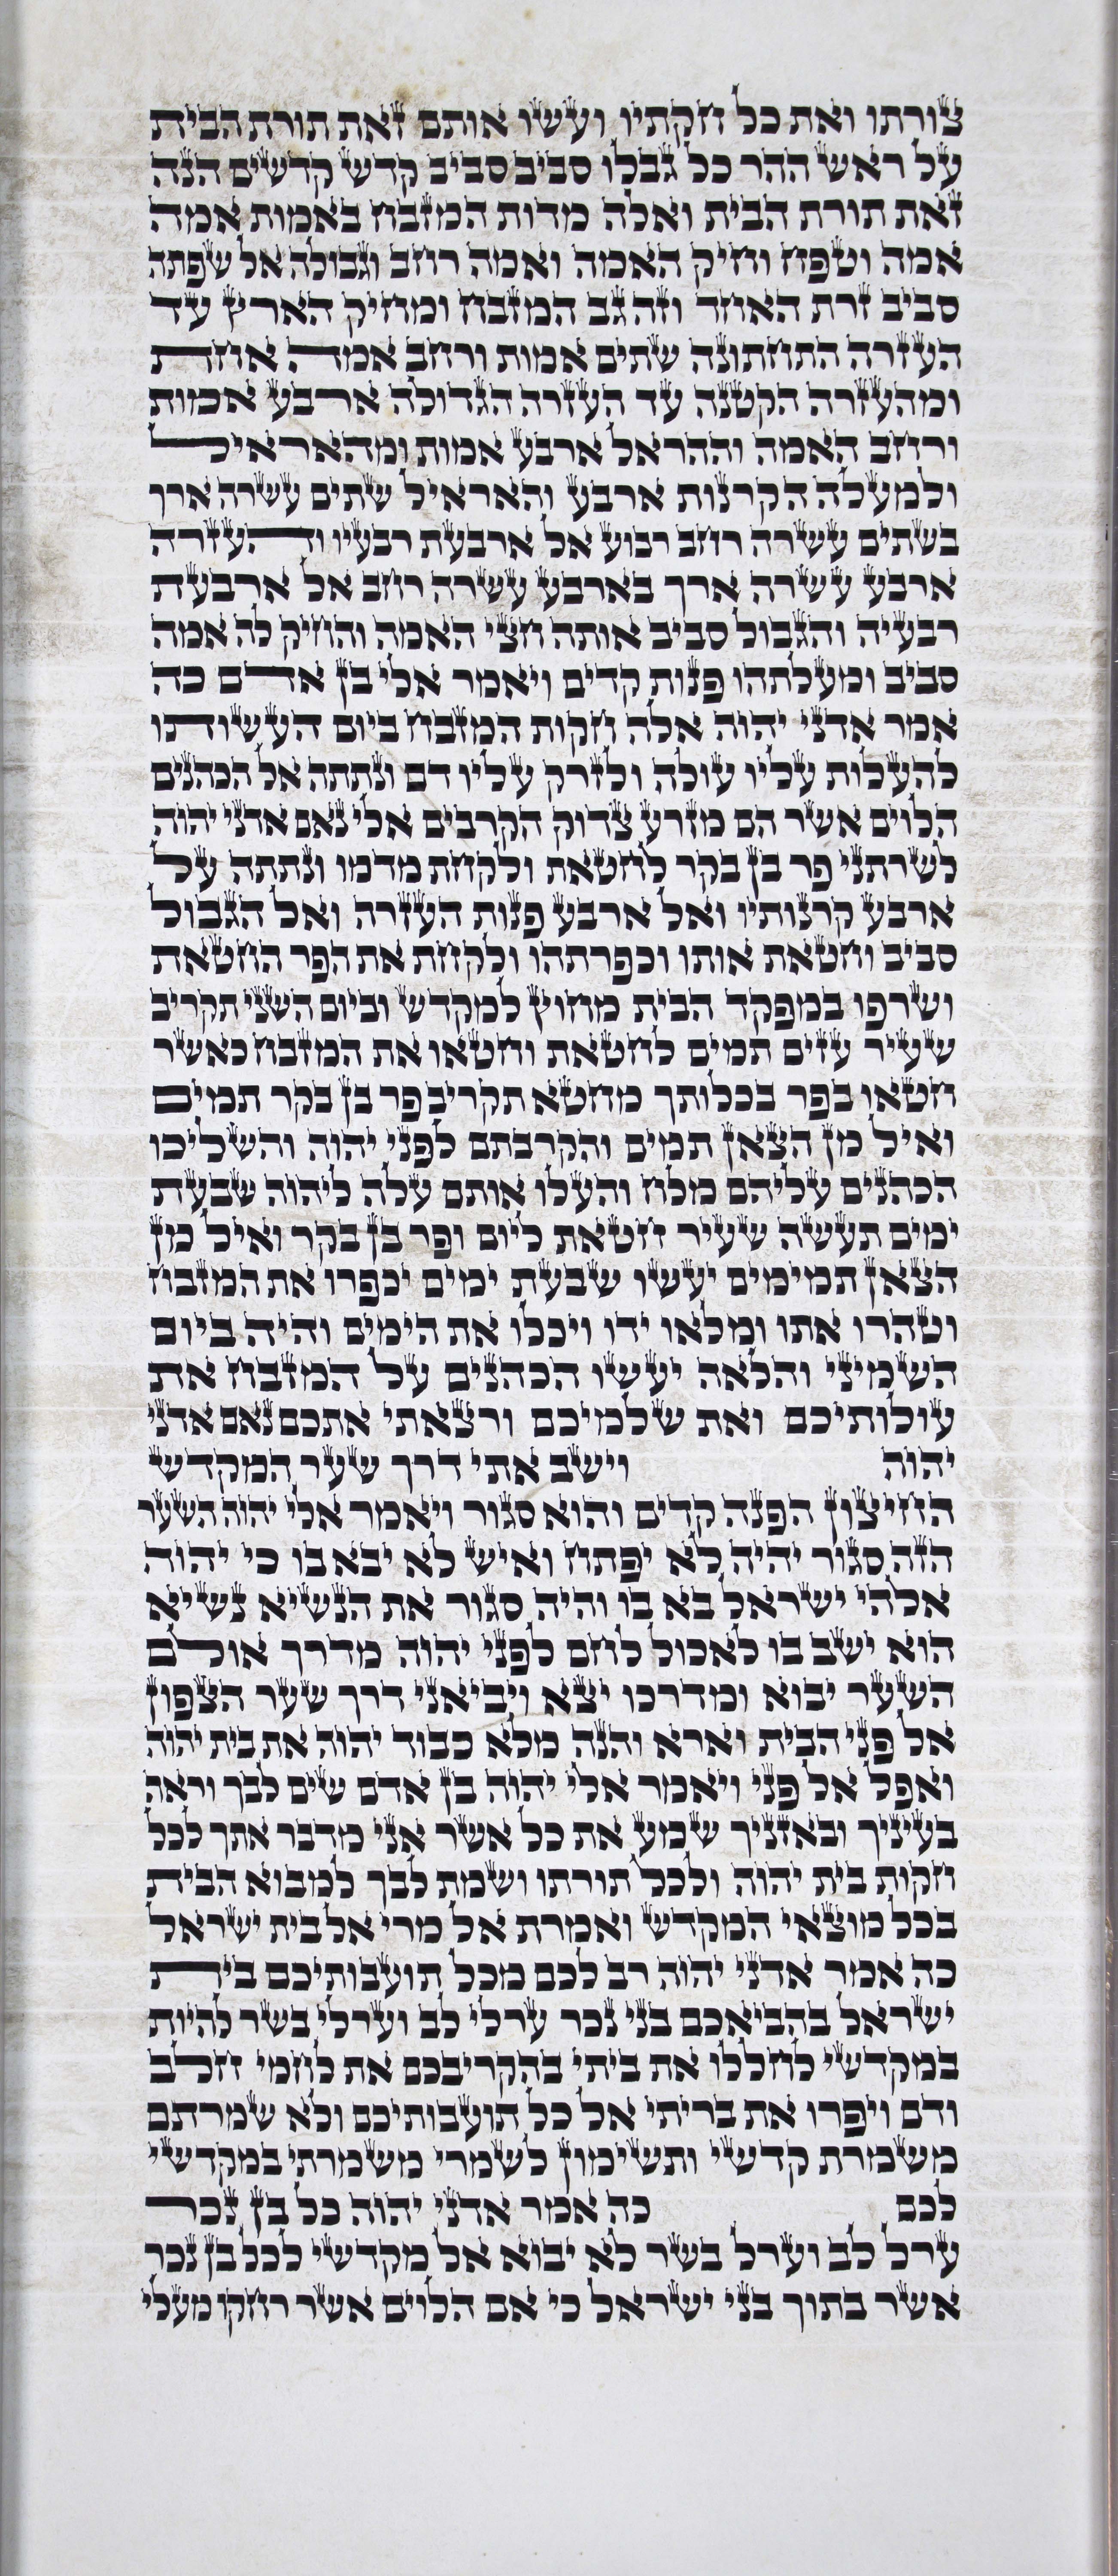 צורתו ואת כל חקתיו ועשו אותם זאת תורת הבית
על ראש ההר כל גבלו סביב סביב קדש קדשים הנה
זאת תורת הבית ואלה מדות המזבח באמות אמה
אמה וטפח וחיק האמה ואמה רחב וגבולה אל שפתה
סביב זרת האחד וזה גב המזבח ומחיק הארץ עד
העזרה התחתונה שתים אמות ורחב אמה אחת
ומהעזרה הקטנה עד העזרה הגדולה ארבע אמות
ורחב האמה וההראל ארבע אמות ומהאראיל
ולמעלה הקרנות ארבע והאראיל שתים עשרה ארך
בשתים עשרה רחב רבוע אל ארבעת רבעיו והעזרה
ארבע עשרה ארך בארבע עשרה רחב אל ארבעת
רבעיה והגבול סביב אותה חצי האמה והחיק לה אמה
סביב ומעלתהו פנות קדים ויאמר אלי בן אדם כה
אמר אדני יהוה אלה חקות המזבח ביום העשותו
להעלות עליו עולה ולזרק עליו דם ונתתה אל הכהנים
הלוים אשר הם מזרע צדוק הקרבים אלי נאם אדני יהוה
לשרתני פר בן בקר לחטאת ולקחת מדמו ונתתה על
ארבע קרנותיו ואל ארבע פנות העזרה ואל הגבול
סביב וחטאת אותו וכפרתהו ולקחת את הפר החטאת
ושרפו במפקד הבית מחוץ למקדש וביום השני תקריב
שעיר עזים תמים לחטאת וחטאו את המזבח כאשר
חטאו בפר בכלותך מחטא תקריב פר בן בקר תמים
ואיל מן הצאן תמים והקרבתם לפני יהוה והשליכו
הכהנים עליהם מלח והעלו אותם עלה ליהוה שבעת
ימים תעשה שעיר חטאת ליום ופר בן בקר ואיל מן
הצאן תמימים יעשו שבעת ימים יכפרו את המזבח
וטהרו אתו ומלאו ידו ויכלו את הימים והיה ביום
השמיני והלאה יעשו הכהנים על המזבח את
עולותיכם ואת שלמיכם ורצאתי אתכם נאם אדני
יהוה וישב אתי דרך שער המקדש
החיצון הפנה קדים והוא סגור ויאמר אלי יהוה השער
הזה סגור יהיה לא יפתח ואיש לא יבא בו כי יהוה
אלהי ישראל בא בו והיה סגור את הנשיא נשיא
הוא ישב בו לאכול לחם לפני יהוה מדרך אולם
השער יבוא ומדרכו יצא ויביאני דרך שער הצפון
אל פני הבית וארא והנה מלא כבוד יהוה את בית יהוה
ואפל אל פני ויאמר אלי יהוה בן אדם שים לבך וראה
בעיניך ובאזניך שמע את כל אשר אני מדבר אתך לכל
חקות בית יהוה ולכל תורתו ושמת לבך למבוא הבית
בכל מוצאי המקדש ואמרת אל מרי אל בית ישראל
כה אמר אדני יהוה רב לכם מכל תועבותיכם בית
ישראל בהביאכם בני נכר ערלי לב וערלי בשר להיות
במקדשי לחללו את ביתי בהקריבכם את לחמי חלב
ודם ויפרו את בריתי אל כל תועבותיכם ולא שמרתם
משמרת קדשי ותשימון לשמרי משמרתי במקדשי
לכם כה אמר אדני יהוה כל בן נכר
ערל לב וערל בשר לא יבוא אל מקדשי לכל בן נכר
אשר בתוך בני ישראל כי אם הלוים אשר רחקו מעלי